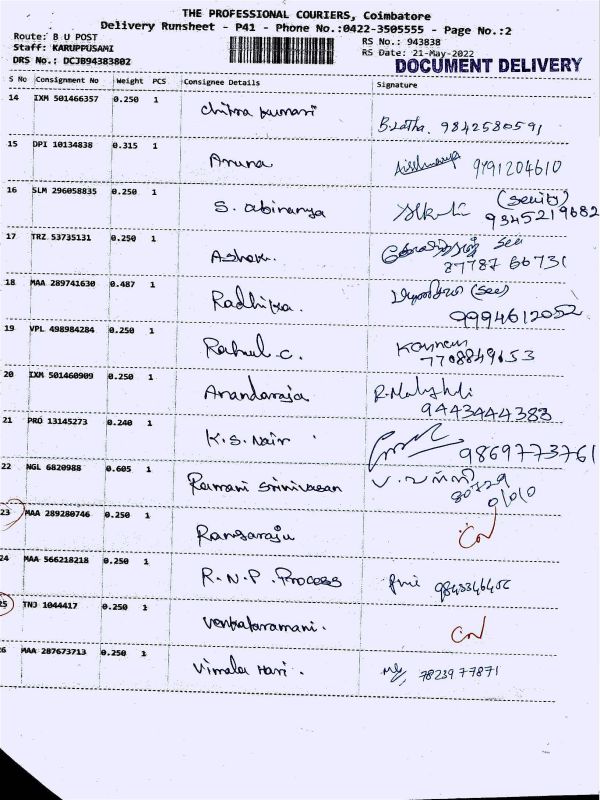 THE PROFESSIONAL COURIERS, Coimbatore
Delivery Runsheet - P41 - Phone No.:0422-3505555 - Page No.:2
Route: B U POST
RS No.: 943838
Staff: KARUPPUSAMI
RS Date: 21-May-2022
DRS No.: DCJB94383802
DOCUMENT DELIVERY
S No Consignment No Weight PCS Consignee Details Signature
14 IXM 501466357 0.250 1 Chitra Kumari B.Latha. 9842580591
15 DPI 10134838 0.315 1 Aruna 9791204610
16 SLM 296058835 0.250 1 S. abiranya 9345219682
17 TRZ 53735131 0.250 1 Ashok. 87787 66731
18 MAA 289741630 0.487 1 Radhika. (Sec) 9994612052
19 VPL 498984284 0.250 1 Rahul C. 7708849653
20 IXM 501460909 0.250 1 Anandaraja 9443444388
21 PRO 13145273 0.240 1 K.S. Nair 9869773761
22 NGL 6820988 0.605 1 Ramani Srinivasan
23 MAA 289280746 0.250 1 Rangaraju
24 MAA 566218218 0.250 1 R.N.P. Process 9843346456
25 TNJ 1044417 0.250 1 Venkataramani.
6 MAA 287673713 0.250 1 Vimala Hari. 7823977871